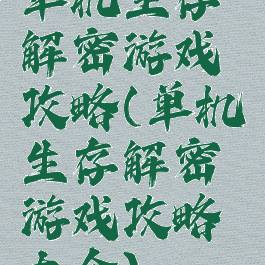 单机生存
解密游戏
攻略(单机
生存解密
游戏攻略
大全)